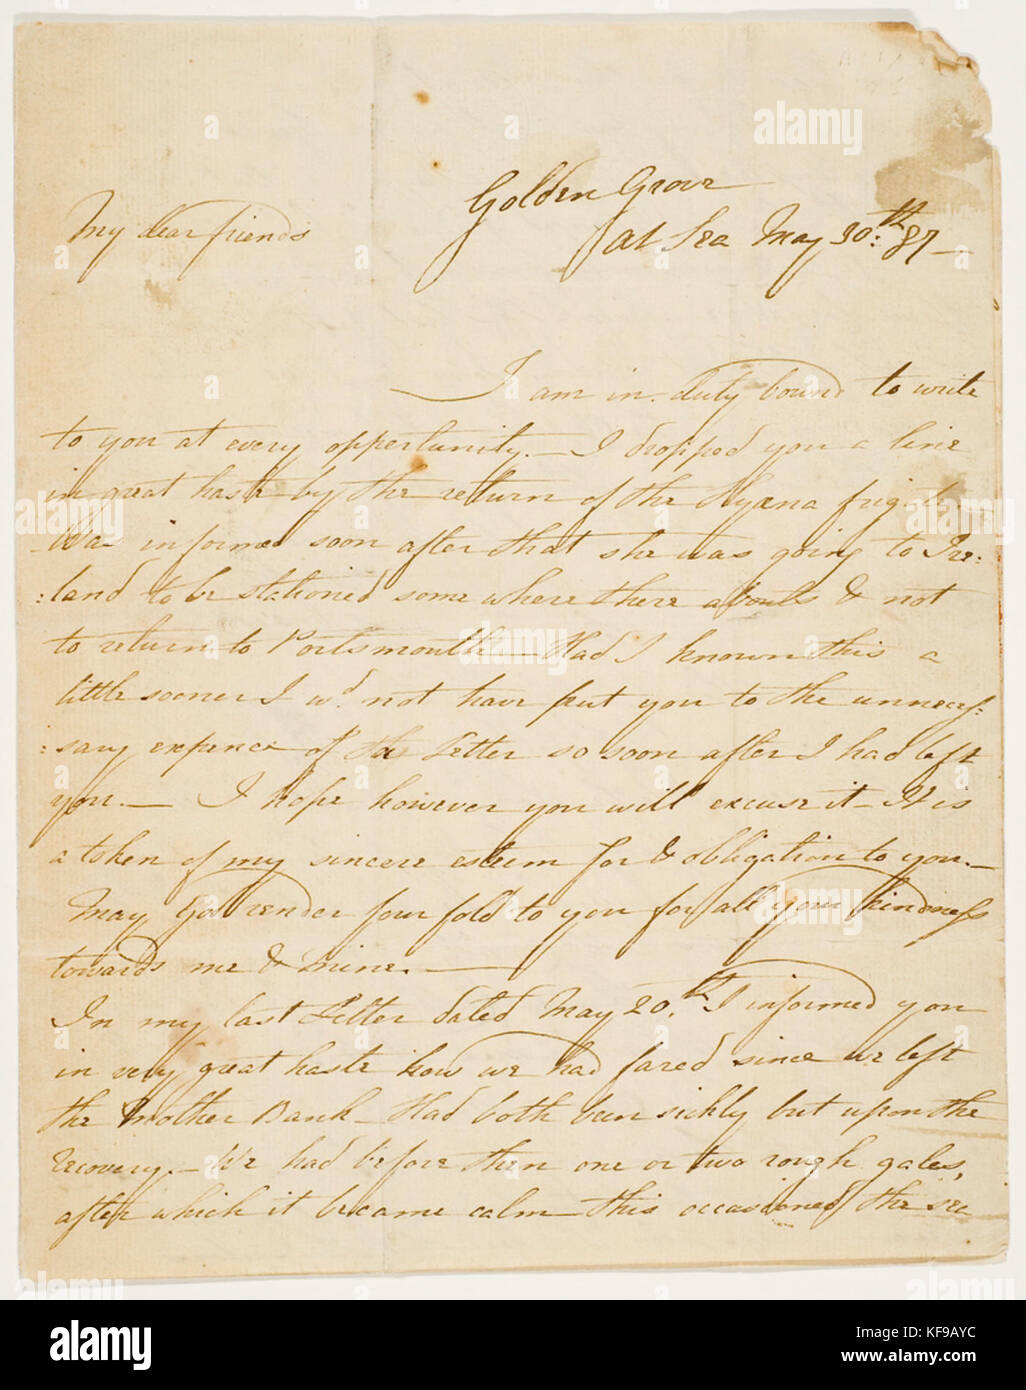 Golden Grove
My dear friends
at Sea May 30:th 87
I am in duty bound to write
to you at every oppertunity. — I dropped you a line
in great haste by the return of the Hyæna frigate
Was informed soon after that she was going to Ire:
:land to be stationed some where there abouts & not
to return to Portsmouth — Had I known this a
little sooner I wd. not have put you to the unneces-
:sary expence of the Letter so soon after I had left
you. — I hope however you will excuse it — It is
a token of my sincere esteem for & obligation to you. —
May God render four fold to you for all your kindness
towards me & mine. —
In my last Letter dated May 20.th I informed you
in very great haste how we had fared since we left
the Mother Bank — Had both been sickly but upon the
recovery. — We had before then one or two rough gales,
after which it became calm — this occasioned the sea
alamy
Image ID: KF9AYC
www.alamy.com